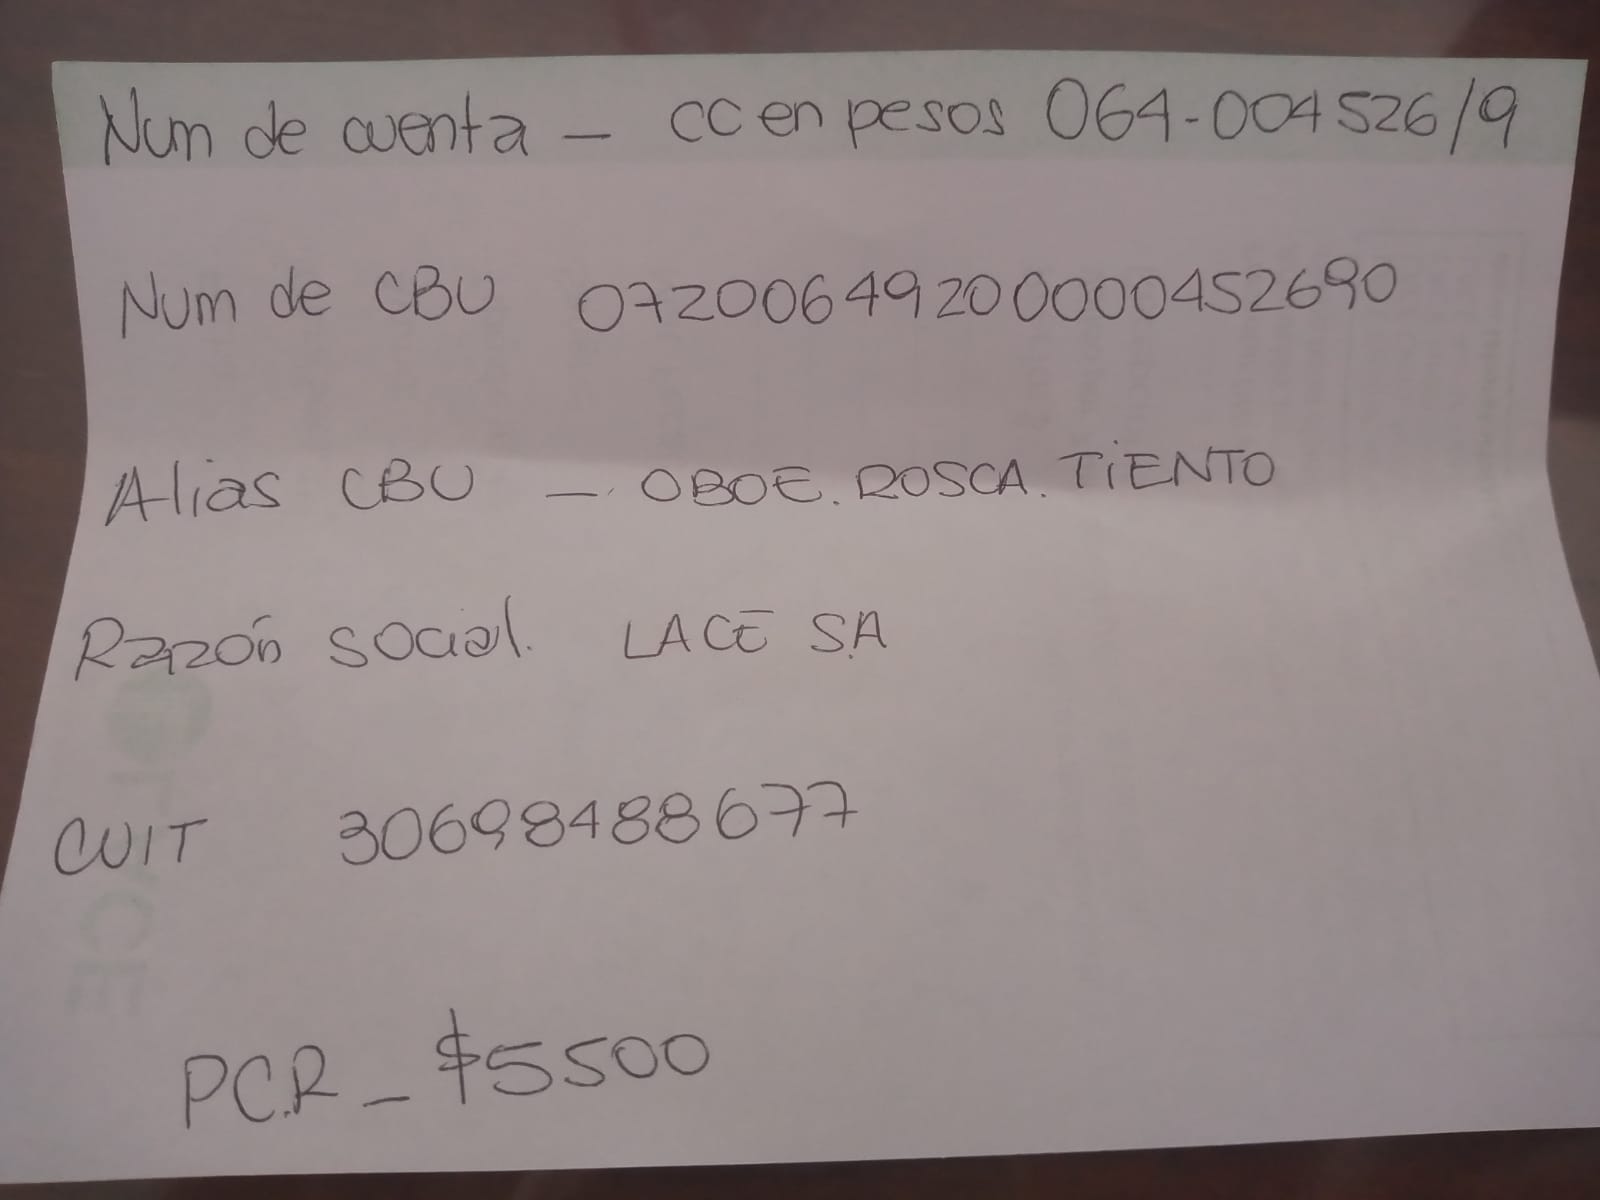 Num de cuenta - CC en pesos 064-004526/9
Num de CBU 0720064920000000452690
Alias CBU - OBOE. ROSCA. TIENTO
Razón social. LACE S.A
CUIT 30698488677
PC.R - $5500